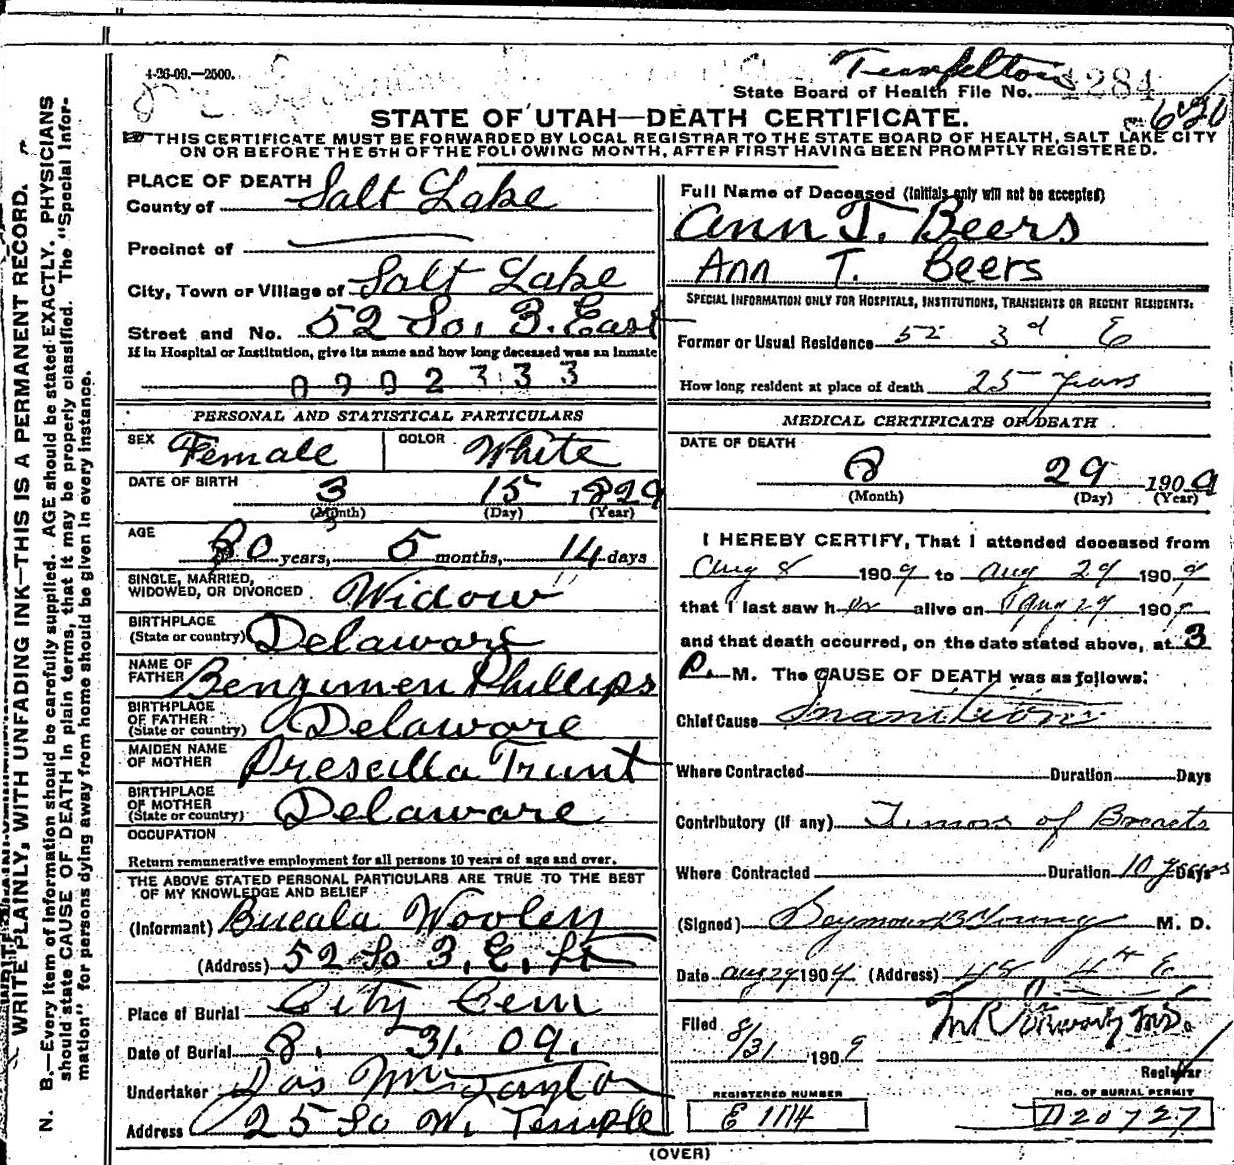 4-26-09.—2500.
State Board of Health File No. 1284
STATE OF UTAH—DEATH CERTIFICATE.
THIS CERTIFICATE MUST BE FORWARDED BY LOCAL REGISTRAR TO THE STATE BOARD OF HEALTH, SALT LAKE CITY
ON OR BEFORE THE 5TH OF THE FOLLOWING MONTH, AFTER FIRST HAVING BEEN PROMPTLY REGISTERED.
WRITE PLAINLY, WITH UNFADING INK—THIS IS A PERMANENT RECORD.
N. B.—Every item of information should be carefully supplied. AGE should be stated EXACTLY. PHYSICIANS
should state CAUSE OF DEATH in plain terms, that it may be properly classified. The "Special Infor-
mation" for persons dying away from home should be given in every instance.
PLACE OF DEATH
County of Salt Lake
Precinct of
City, Town or Village of Salt Lake
Street and No. 52 So. 3. East
If in Hospital or Institution, give its name and how long deceased was an inmate
0902333
PERSONAL AND STATISTICAL PARTICULARS
SEX Female COLOR White
DATE OF BIRTH 3 15 1829
(Month) (Day) (Year)
AGE 80 years, 5 months, 14 days
SINGLE, MARRIED,
WIDOWED, OR DIVORCED Widow
BIRTHPLACE
(State or country) Delaware
NAME OF
FATHER Benzimen Phillips
BIRTHPLACE
OF FATHER
(State or country) Delaware
MAIDEN NAME
OF MOTHER Prescilla Trunt
BIRTHPLACE
OF MOTHER
(State or country) Delaware
OCCUPATION
Return remunerative employment for all persons 10 years of age and over.
THE ABOVE STATED PERSONAL PARTICULARS ARE TRUE TO THE BEST
OF MY KNOWLEDGE AND BELIEF
(Informant) Wooley
(Address) 52 So 3. E. St
Place of Burial City Cem
Date of Burial 8. 31. 09.
Undertaker Jos Wm Taylor
Address 25 So W. Temple
Full Name of Deceased (Initials only will not be accepted)
Ann T. Beers
Ann T. Beers
SPECIAL INFORMATION ONLY FOR HOSPITALS, INSTITUTIONS, TRANSIENTS OR RECENT RESIDENTS:
Former or Usual Residence 52 3d E
How long resident at place of death 25 years
MEDICAL CERTIFICATE OF DEATH
DATE OF DEATH
8 29 1909
(Month) (Day) (Year)
I HEREBY CERTIFY, That I attended deceased from
Aug 8 1909 to Aug 29 1909
that I last saw her alive on Aug 29 1909
and that death occurred, on the date stated above, at 3
P. M. The CAUSE OF DEATH was as follows:
Chief Cause Inanition
Where Contracted Duration Days
Contributory (if any) Tumors of Breasts
Where Contracted Duration 10 years Days
(Signed) Seymour B Young M. D.
Date Aug 29 1909 (Address) 48 4th E
Filed 8/31 1909
Registrar
REGISTERED NUMBER
E 1114
NO. OF BURIAL PERMIT
D20727
(OVER)